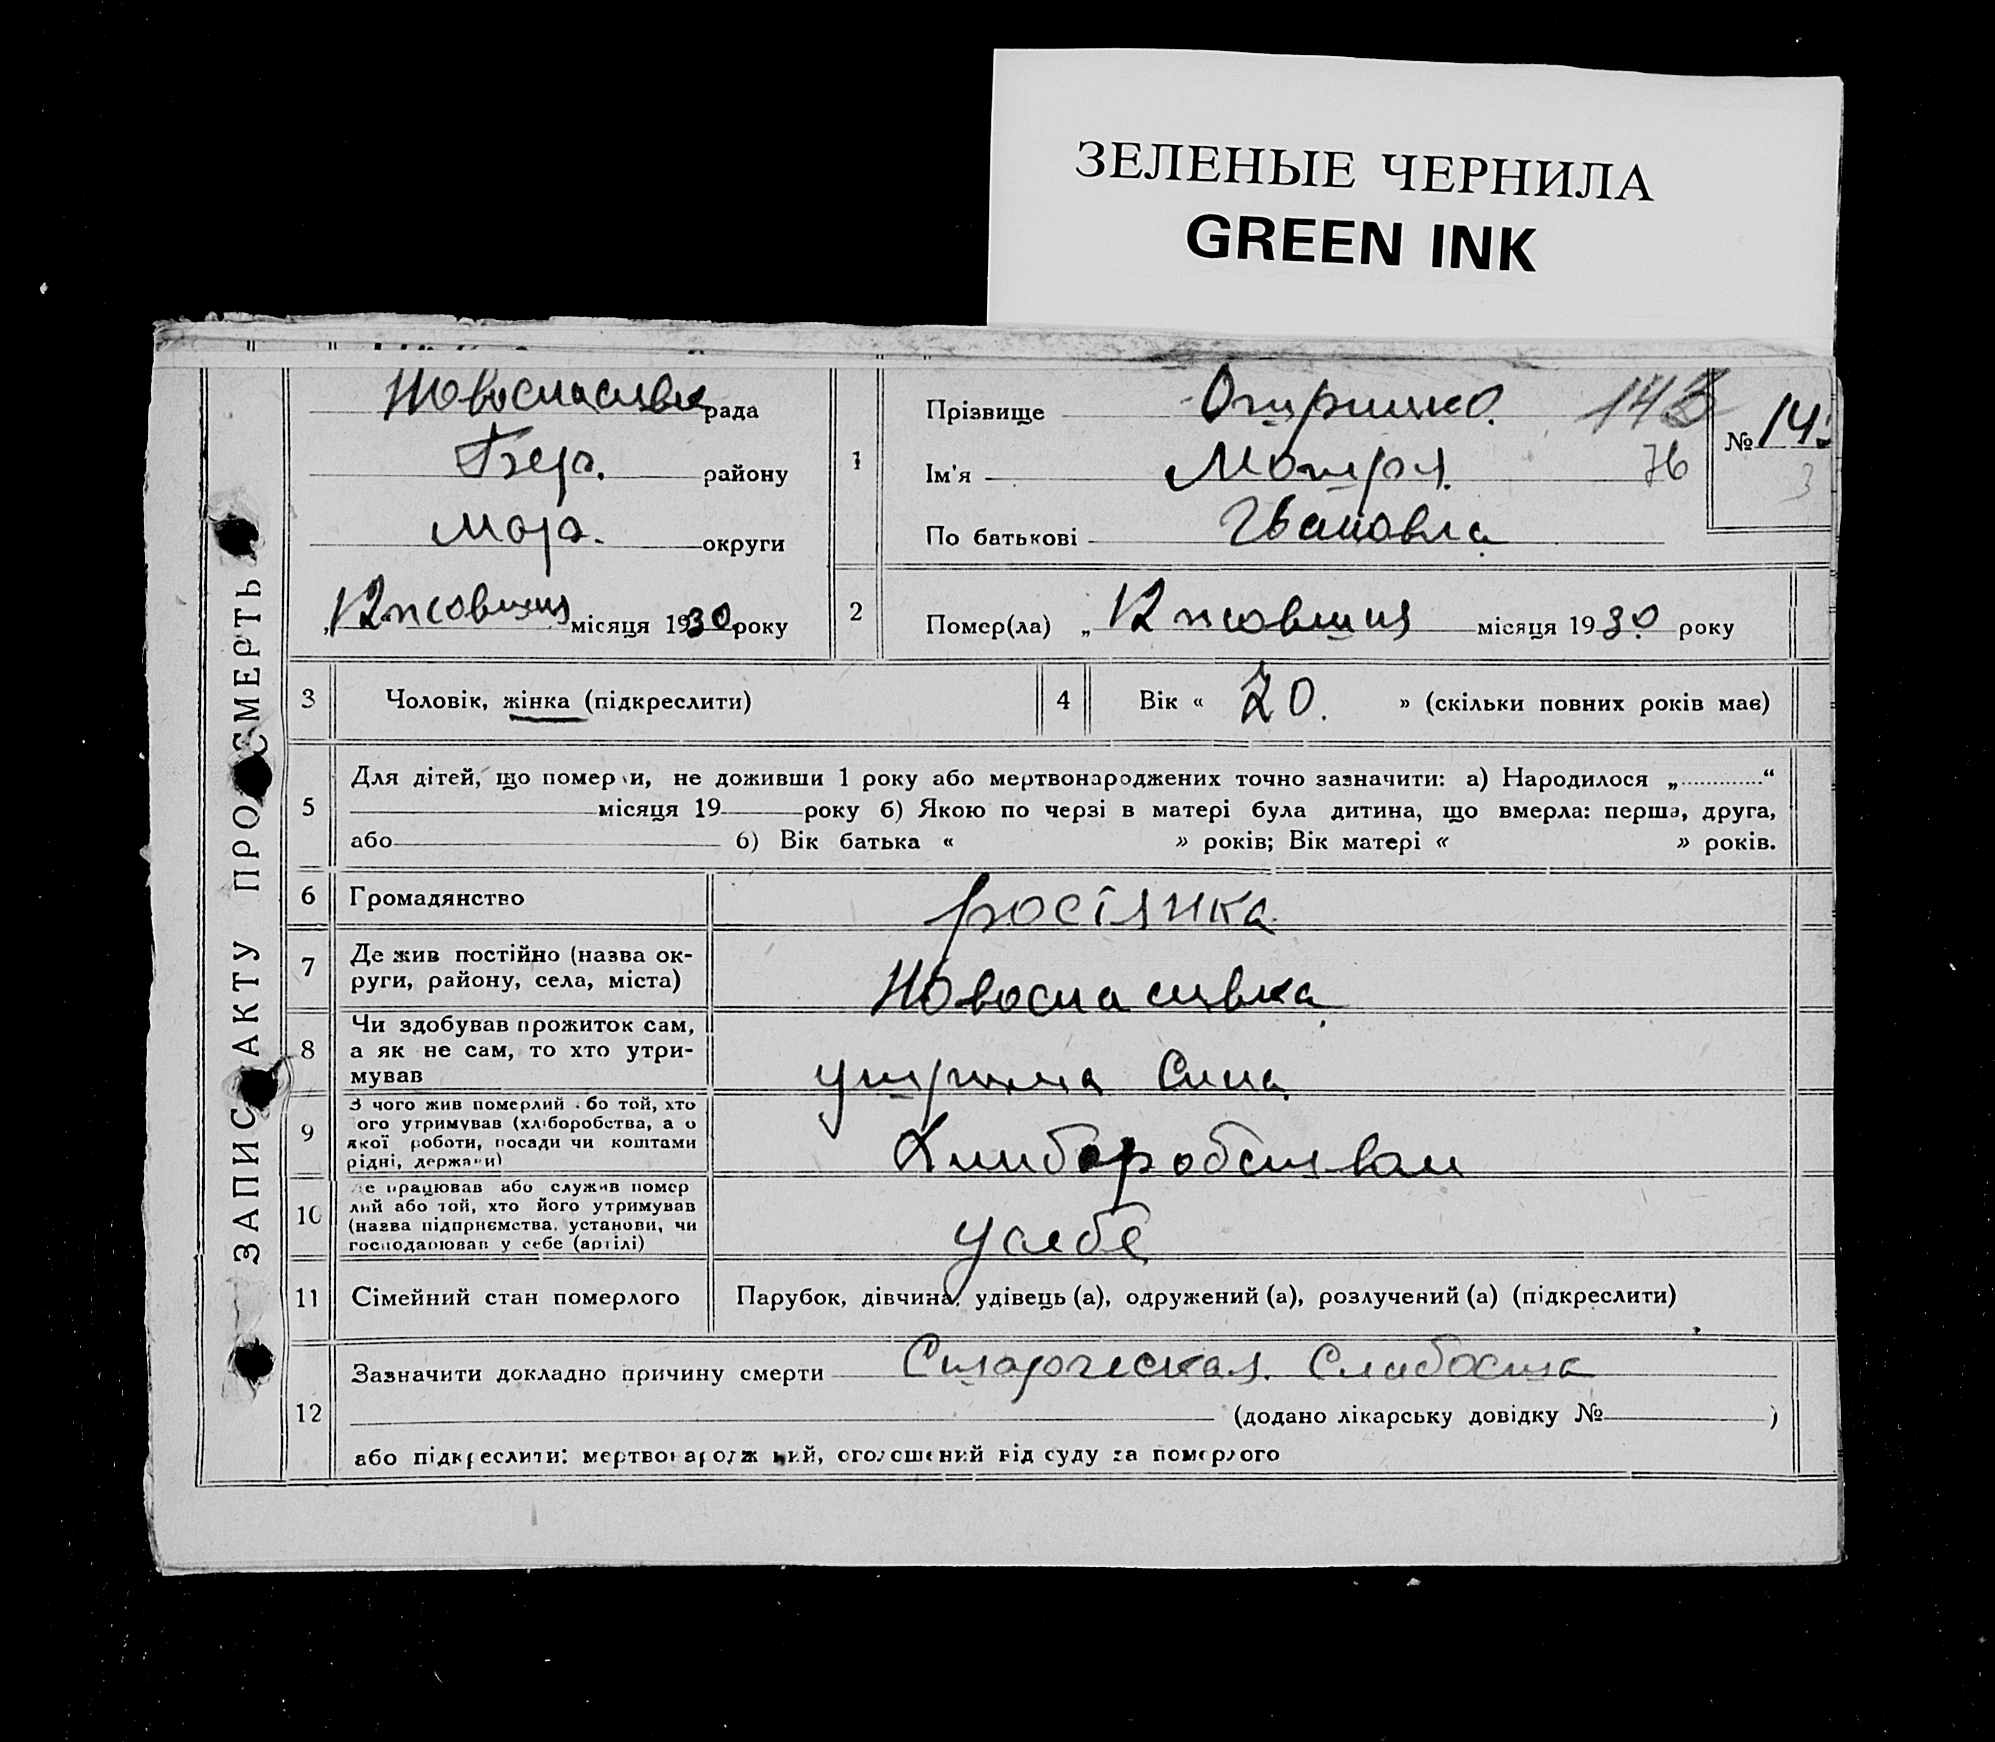 ЗЕЛЕНЫЕ ЧЕРНИЛА
GREEN INK
ЗАПИС АКТУ ПРО СМЕРТЬ
Новоспасивка рада
Бер. району
Мар. округи
„12 жовтня місяця 1930 року
1
Прізвище Отришко.
Ім'я Мотря.
По батькові Івановна
143
76
№ 143
3
2
Помер(ла) „ 12 жовтня місяця 1930 року
3
Чоловік, жінка (підкреслити)
4
Вік « 70. » (скільки повних років має)
5
Для дітей, що померли, не доживши 1 року або мертвонароджених точно зазначити: а) Народилося „ “
місяця 19 року б) Якою по черзі в матері була дитина, що вмерла: перша, друга,
або б) Вік батька « » років; Вік матері « » років.
6
Громадянство росіянка
7
Де жив постійно (назва ок-
руги, району, села, міста)
Новоспасивка
8
Чи здобував прожиток сам,
а як не сам, то хто утри-
мував
утрима Сина
9
З чого жив померлий або той, хто
ого утримував (хліборобства, а о
якої роботи, посади чи коштами
рідні, держави)
Хлиборобством
10
Де працював або служив помер
лий або той, хто його утримував
(назва підприємства, установи, чи
господарював у себе (артілі)
у себе
11
Сімейний стан померлого
Парубок, дівчина, удівець (а), одружений (а), розлучений (а) (підкреслити)
12
Зазначити докладно причину смерти Старческая Слабость
(додано лікарську довідку № )
або підкреслити: мертвонароджений, оголошений від суду за померлого